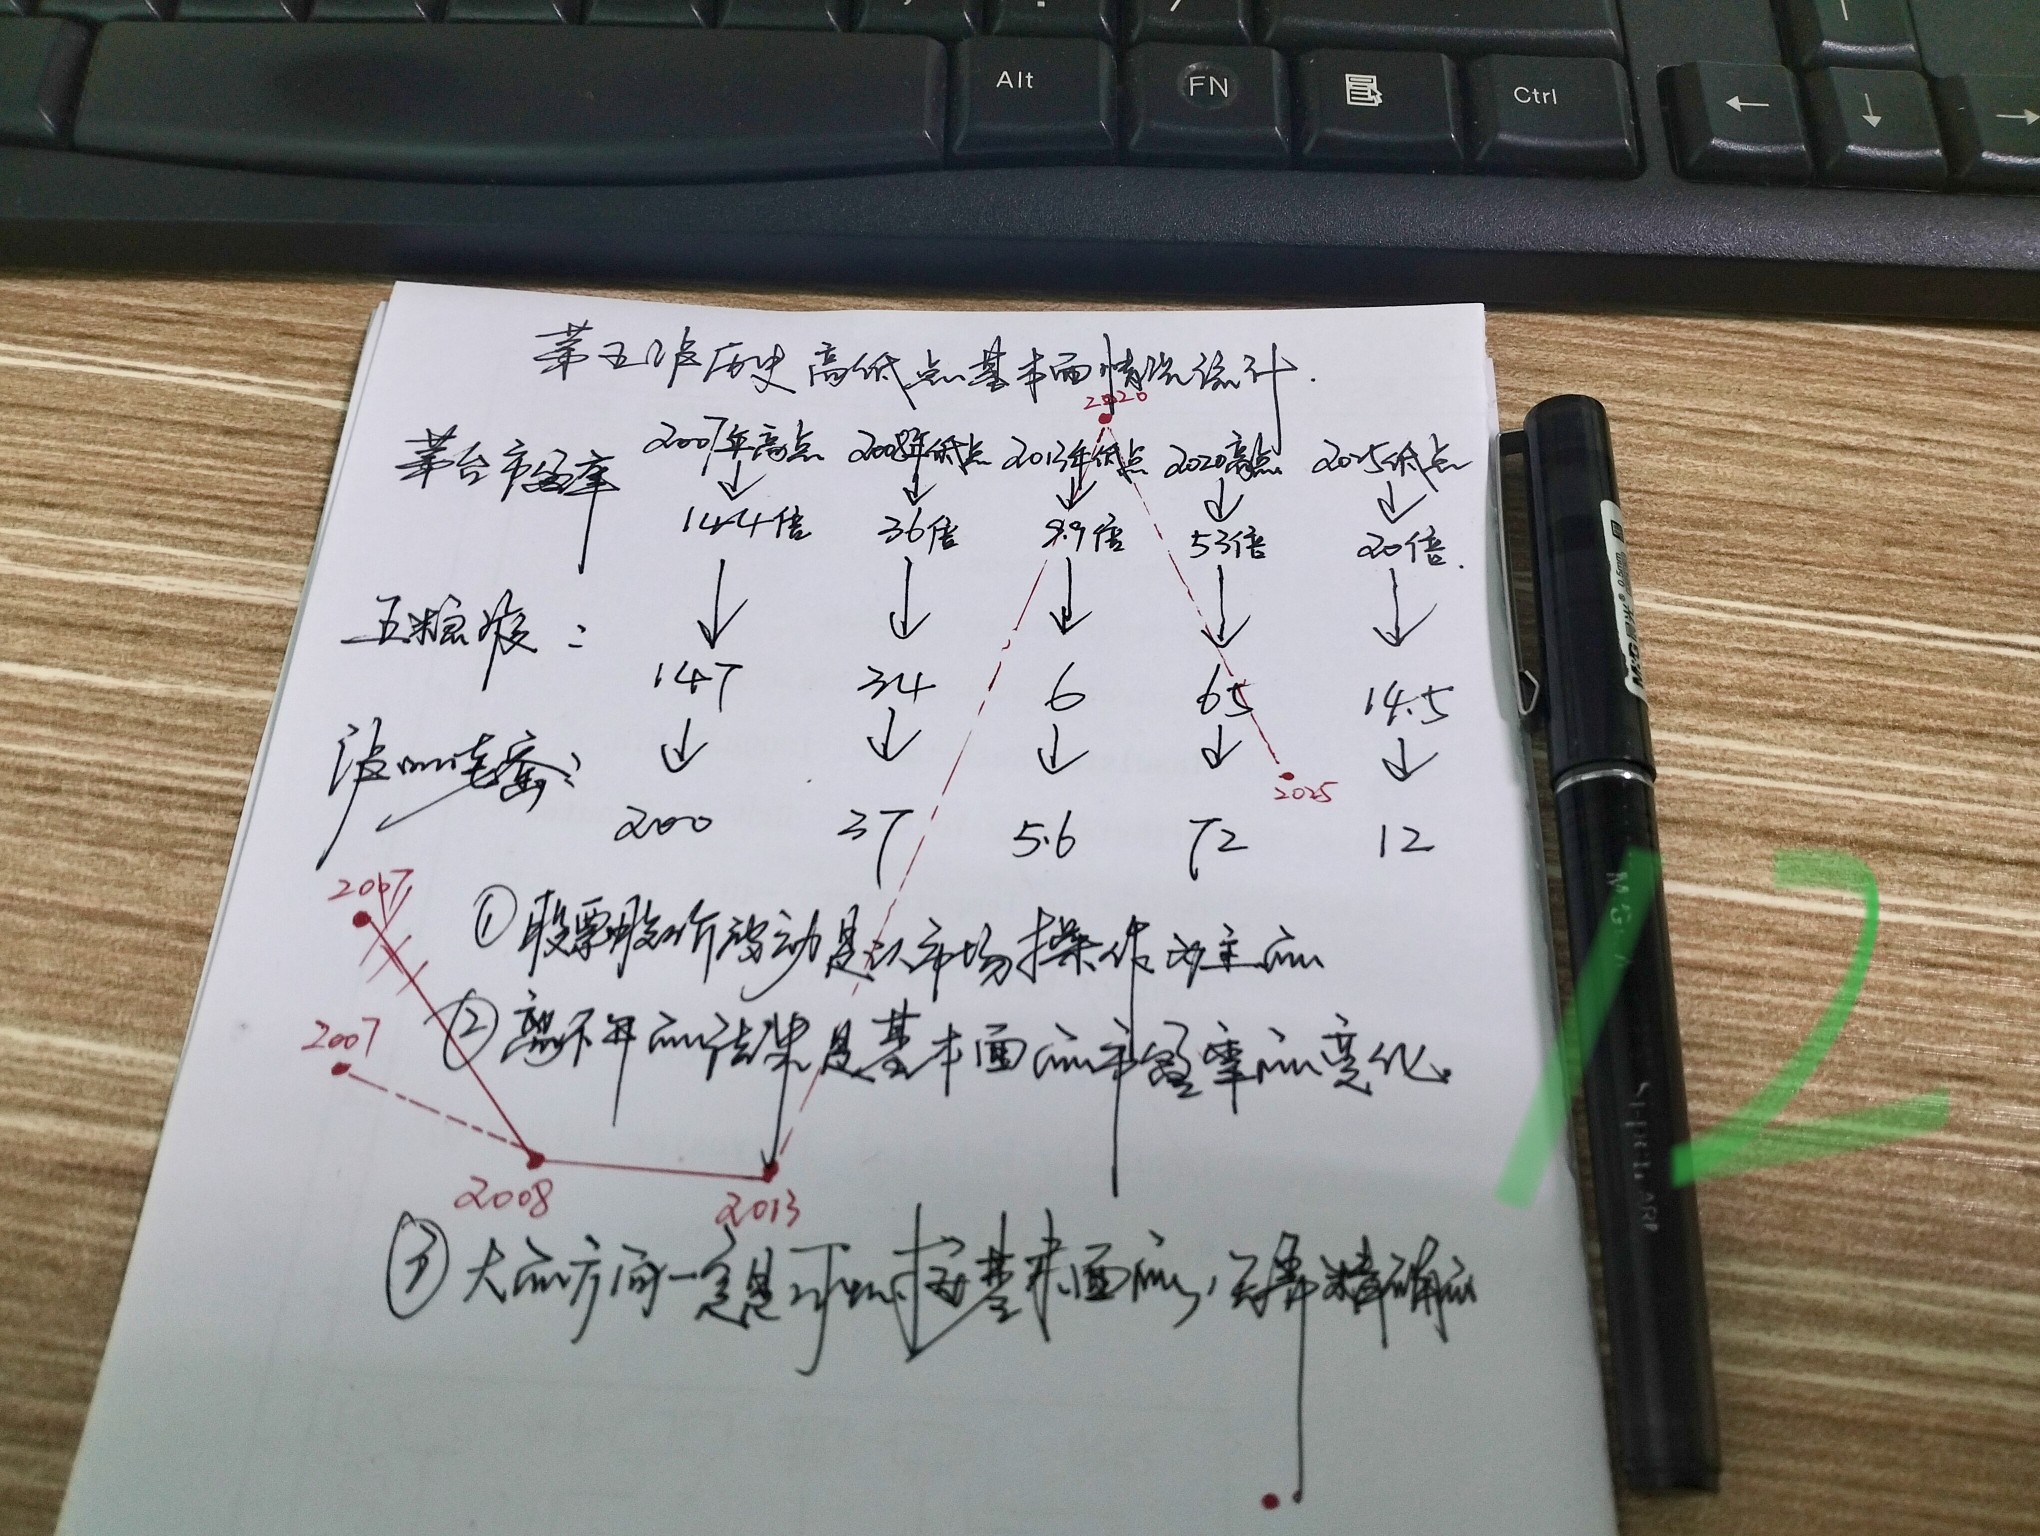 Alt FN Ctrl
茅五泸历史高低点基本面情况统计.
2020
茅台市盈率 2007年高点 2008年低点 2013年低点 2020高点 2025低点
144倍 36倍 9.9倍 53倍 20倍.
五粮液: 147 34 6 65 14.5
泸州老窖: 200 37 5.6 72 12
2025
2007
①股票股价波动是以市场操作为主的
②离不开的结果是基本面的市盈率的变化.
2007
2008 2013
③大的方向一定是可以按基本面的,精确的
M&G
0.5mm
12